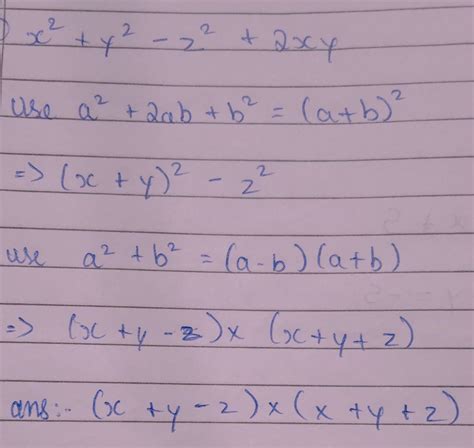 x² + y² - z² + 2xy
use a² + 2ab + b² = (a+b)²
=> (x + y)² - z²
use a² + b² = (a-b)(a+b)
=> (x+y-z)x (x+y+z)
ans:- (x +y-z)x(x +y+z)